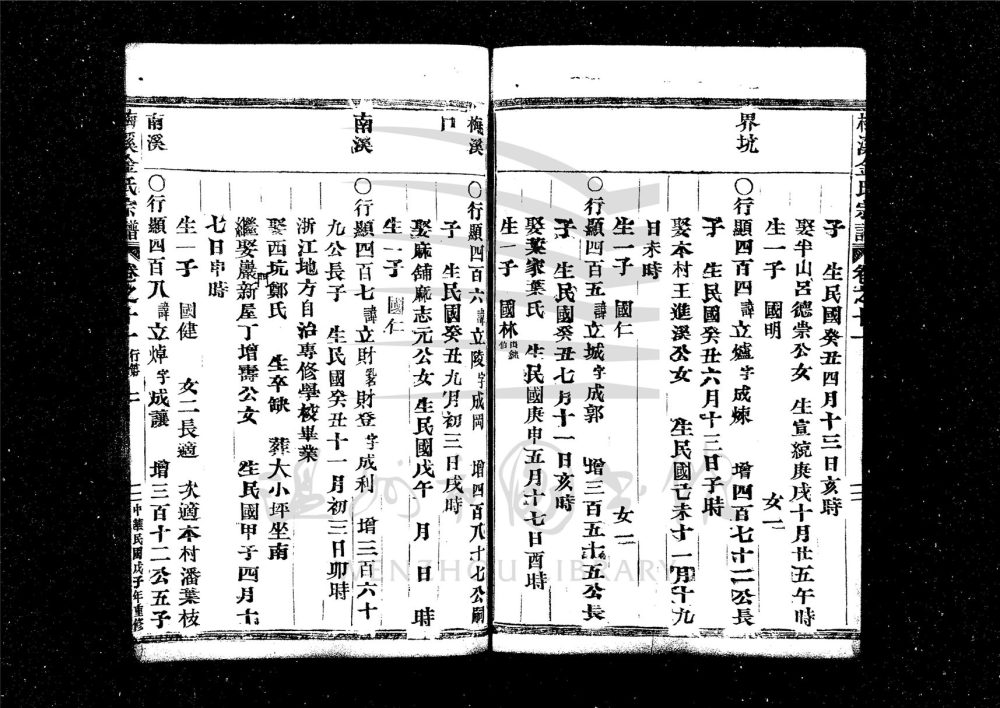 梅溪金氏宗譜 卷之十一
子 生民國癸丑四月十三日亥時
娶半山呂德崇公女 生宣統庚戌十月廿五午時
生一子 國明 女一
界坑
○行顯四百四 諱立爐 字成煉 增四百七十二公長
子 生民國癸丑六月十三日子時
娶本村王進溪公女 生民國己未十一月十九
日未時
生一子 國仁 女一
○行顯四百五 諱立城 字成郭 增三百五十五公長
子 生民國癸丑七月十一日亥時
娶葉家葉氏 生民國庚申五月十七日酉時
生一子 國林
梅溪口
○行顯四百六 諱立陵 字成岡 增四百八十七公嗣
子 生民國癸丑九月初三日戌時
娶麻鋪麻志元公女 生民國戊午 月 日 時
生一子 國仁
南溪
○行顯四百七 諱立財 財登 字成利 增三百六十
九公長子 生民國癸丑十一月初三日卯時
浙江地方自治專修學校畢業
娶西坑鄭氏 生卒缺 葬大小坪坐南
繼娶巖新屋丁增壽公女 生民國甲子四月十
七日申時
生一子 國健 女二長適 次適本村潘葉枝
南溪
○行顯四百八 諱立焯 字成讓 增三百十二公五子
梅溪金氏宗譜 卷之十一 行第 二 中華民國戊子年重修
WENZHOU LIBRARY